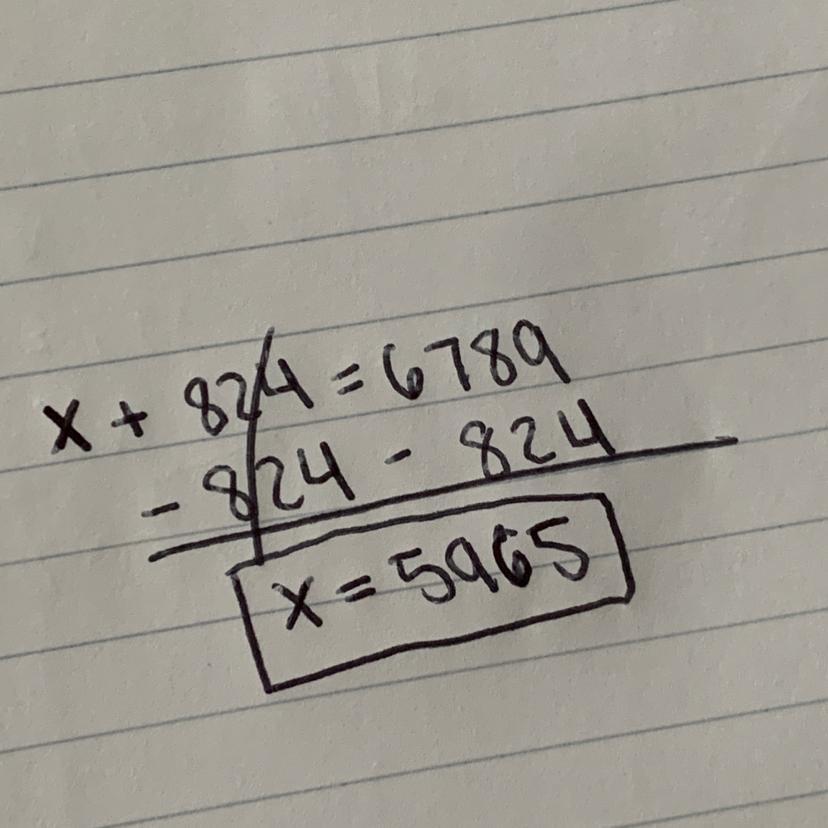 x + 824 = 6789
- 824 - 824
x = 5965